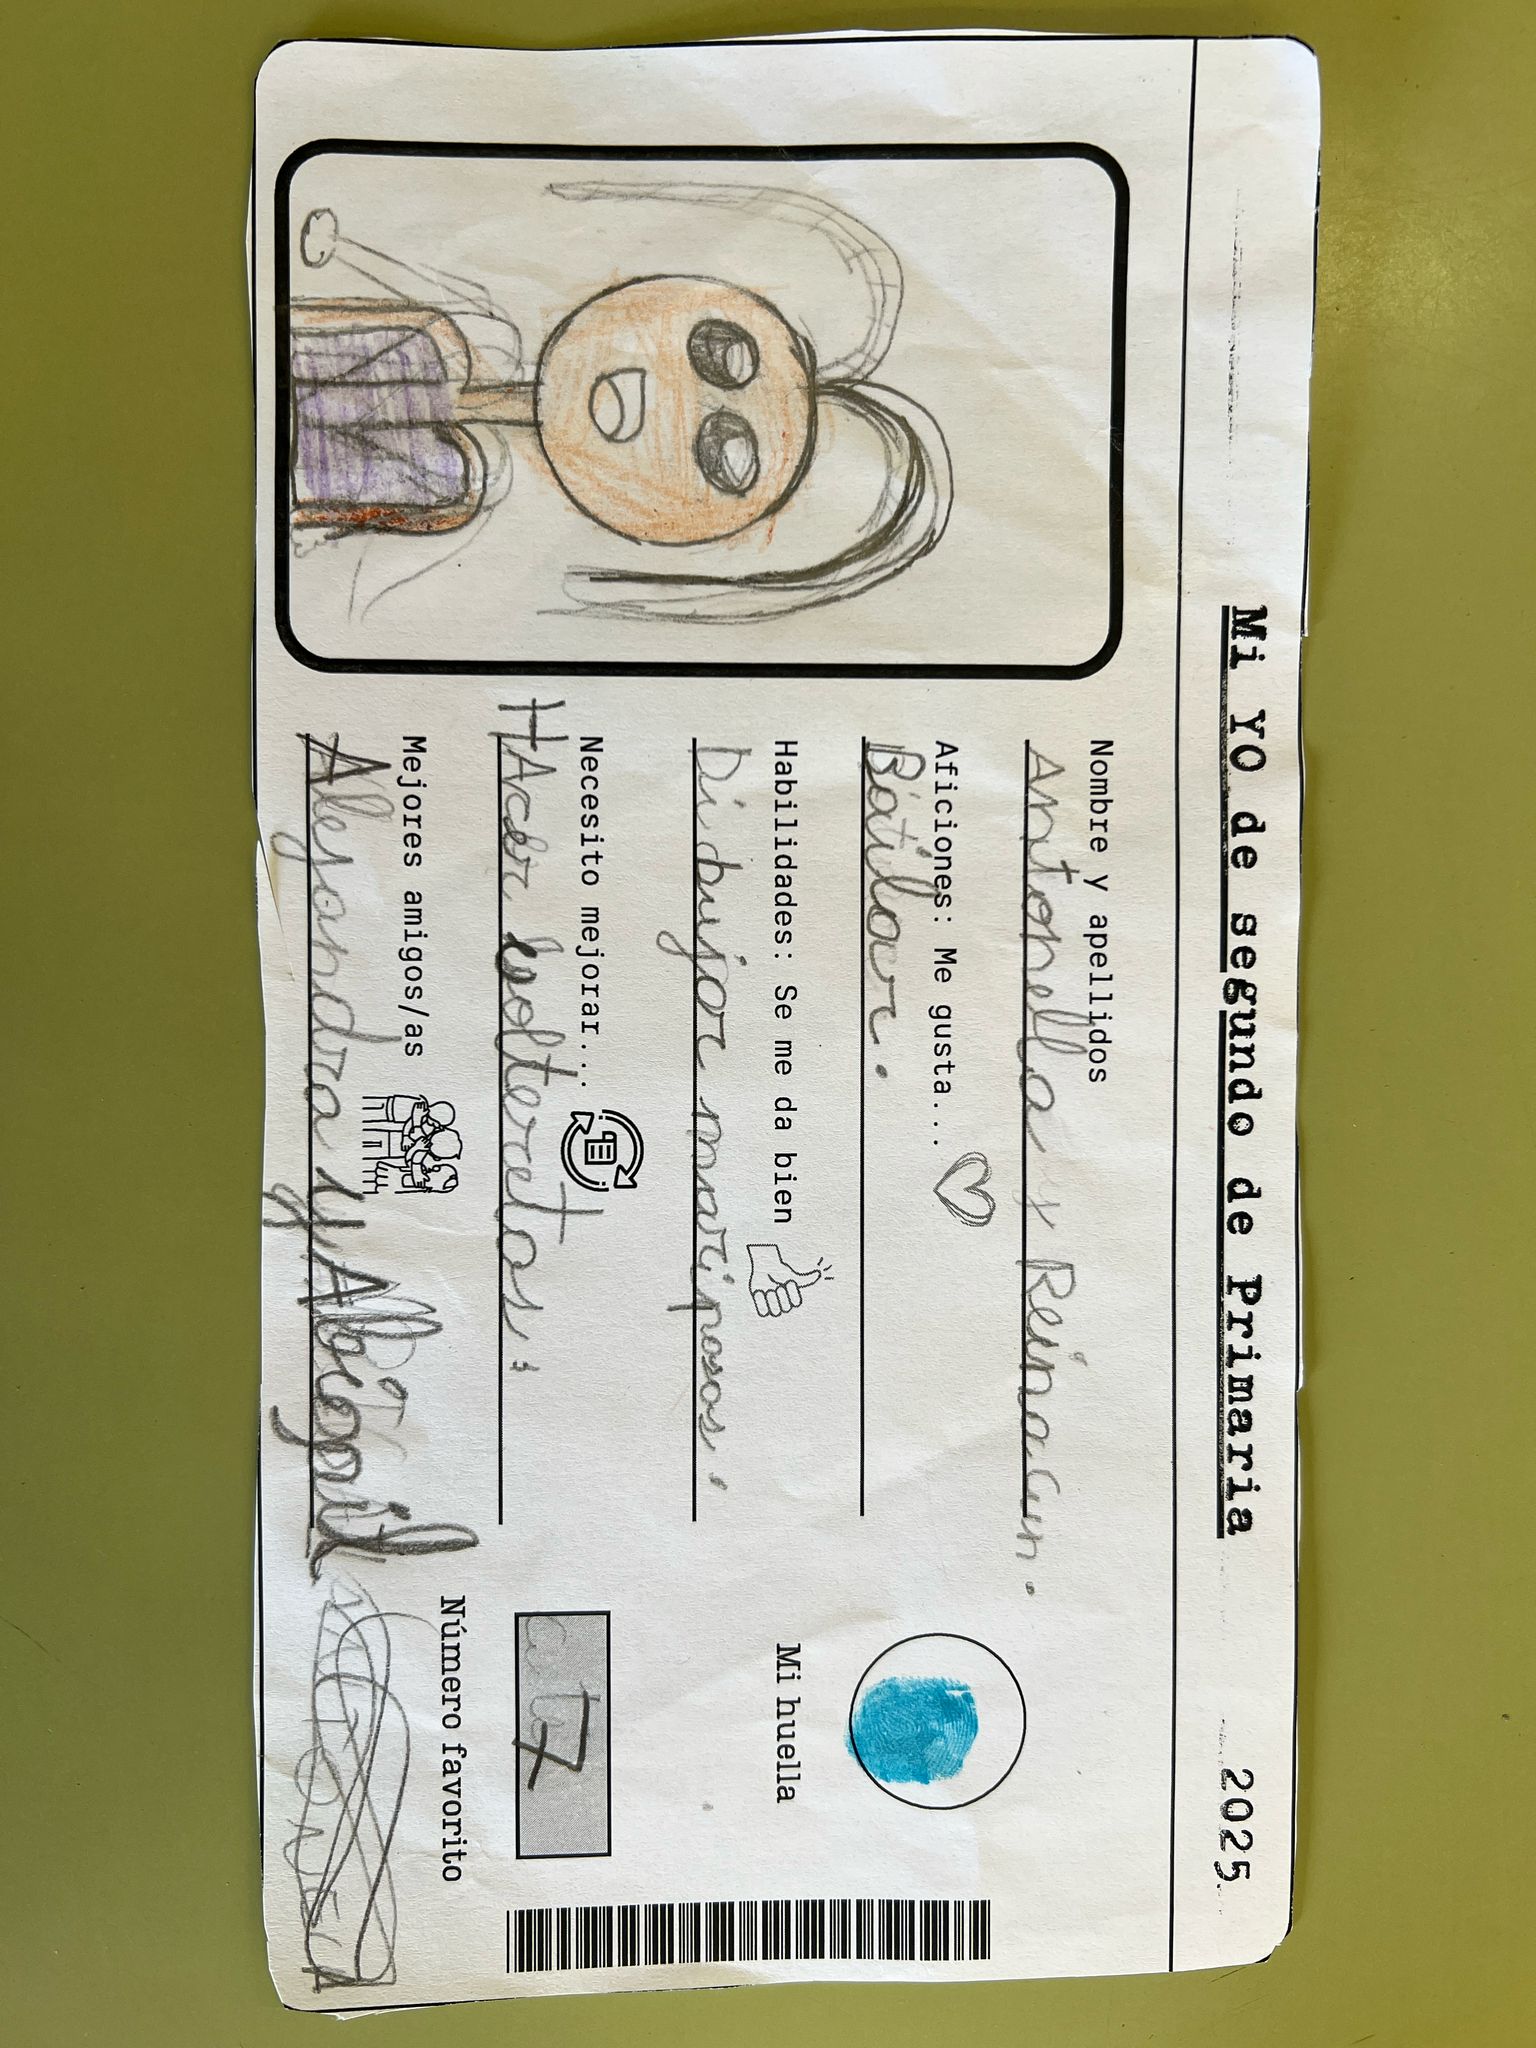 Mi YO de segundo de Primaria
2025
Nombre y apellidos
Antonella y Reina Cun.
Aficiones: Me gusta...
Bailar.
Habilidades: Se me da bien
Dibujar mariposas.
Necesito mejorar...
HAcer volteretas.
Mejores amigos/as
Alejandra y Abigail
Mi huella
7
Número favorito